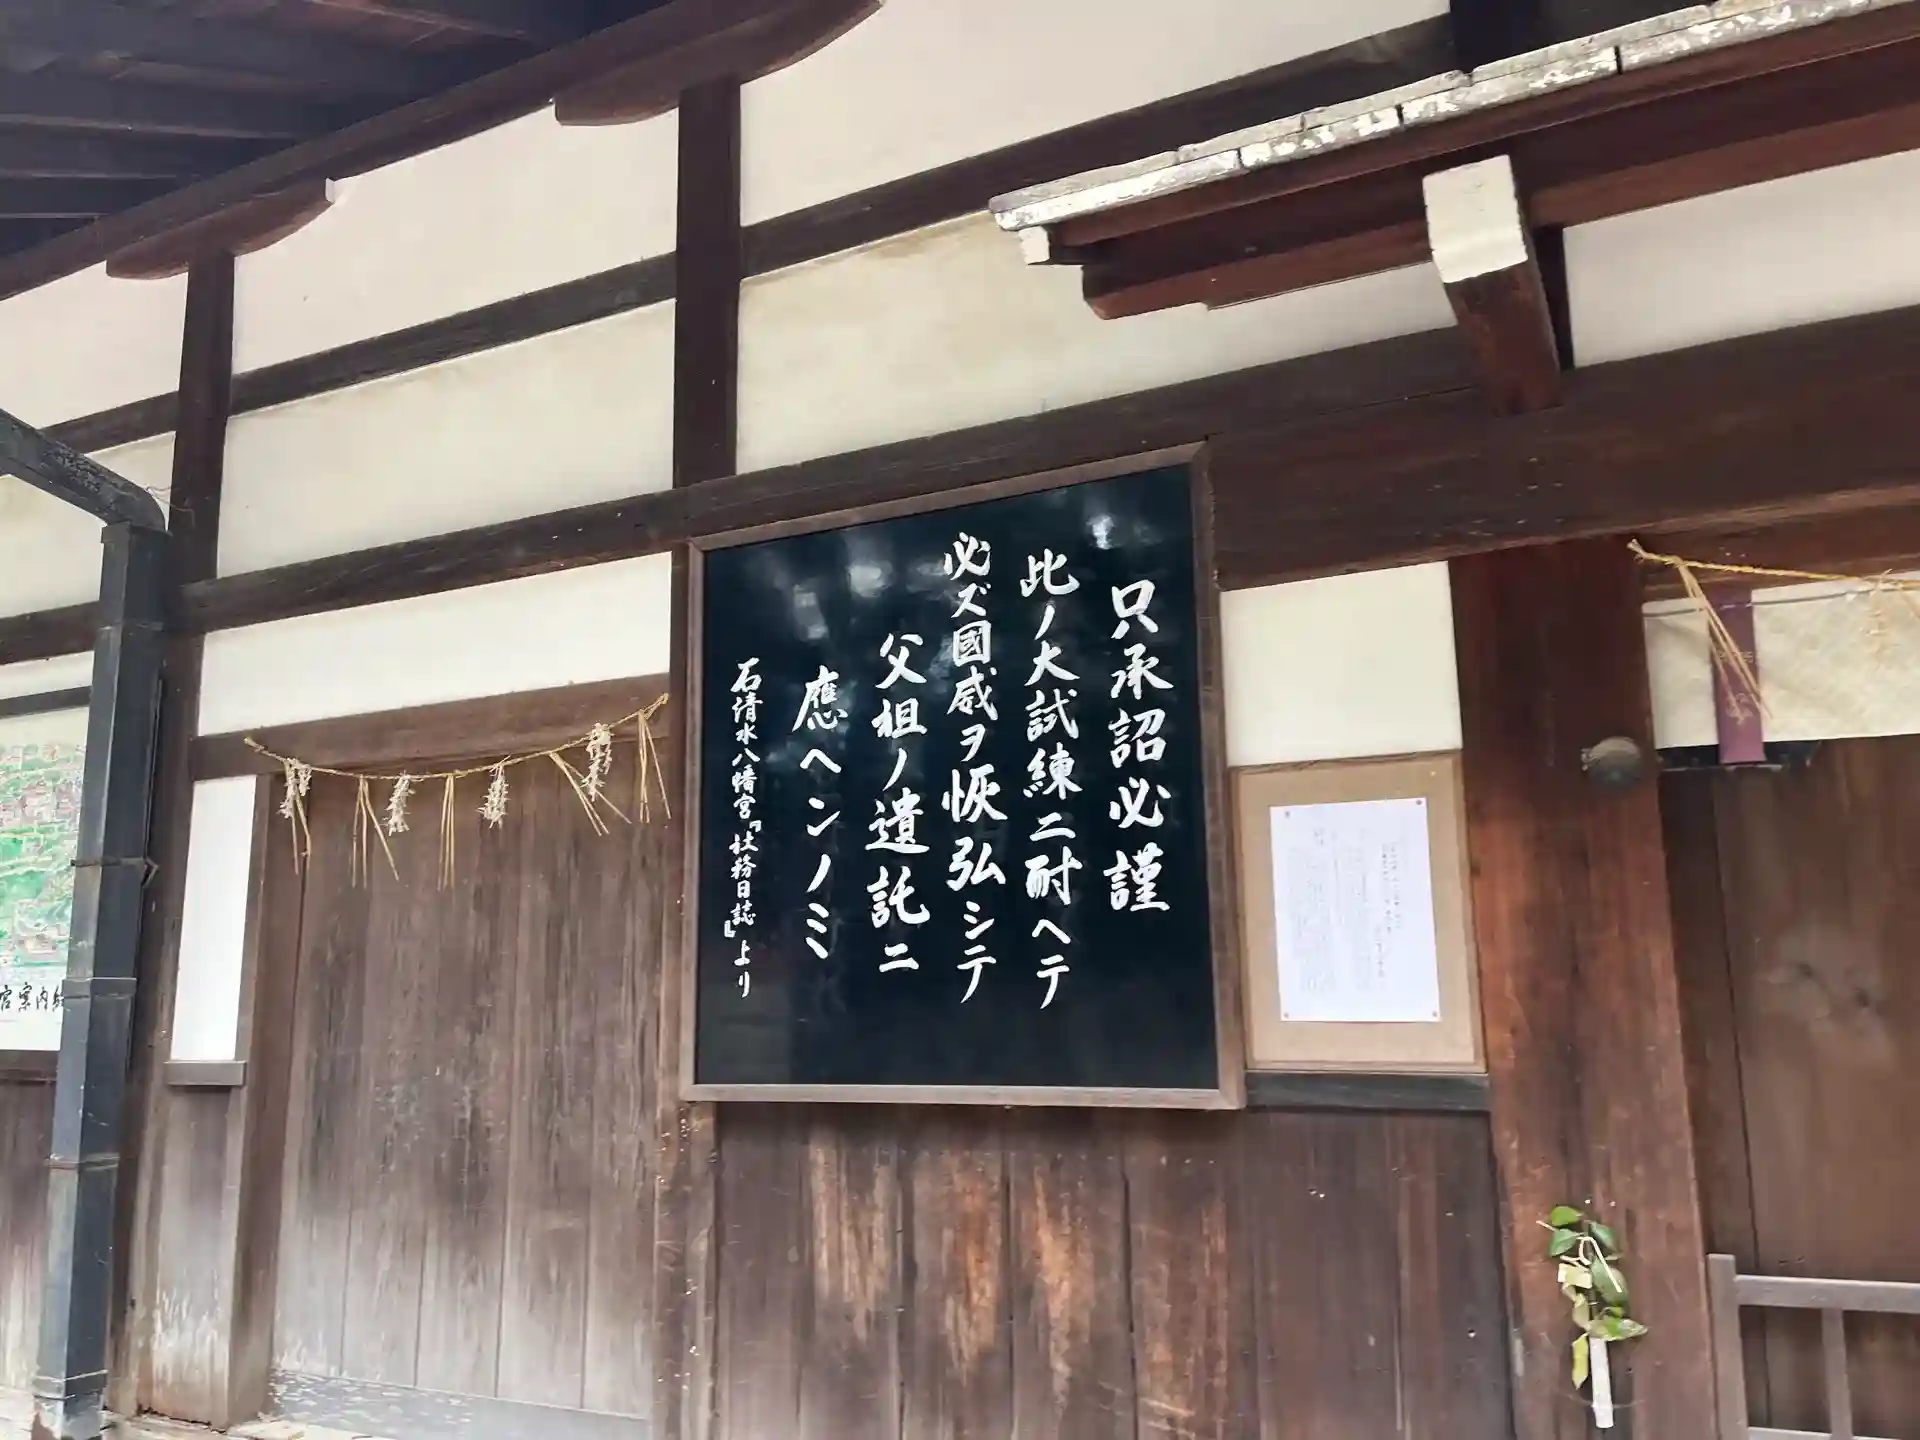 只承詔必謹
此ノ大試練ニ耐ヘテ
必ズ國威ヲ恢弘シテ
父祖ノ遺託ニ
應ヘンノミ
石清水八幡宮『社務日誌』より
宮案内